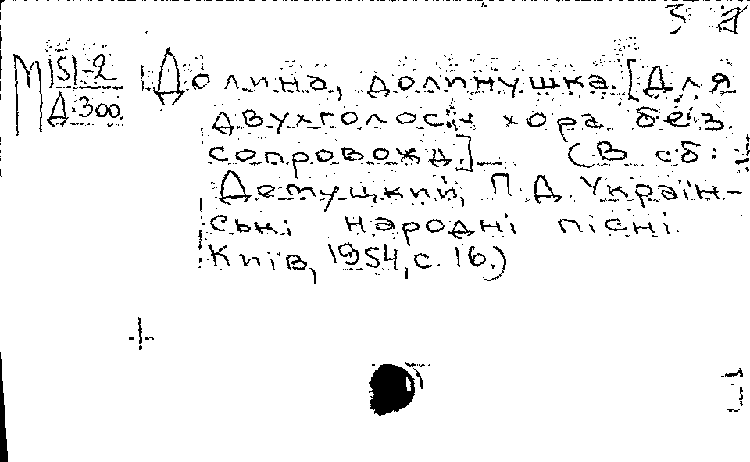 М 151-2 Долина, долинушка [Для
Д 300 двухголосн хора без
сопровожд.] — (В сб:
Демуцкий, П. Д. Україн-
ські народні пісні.
Київ, 1954, с. 16.)